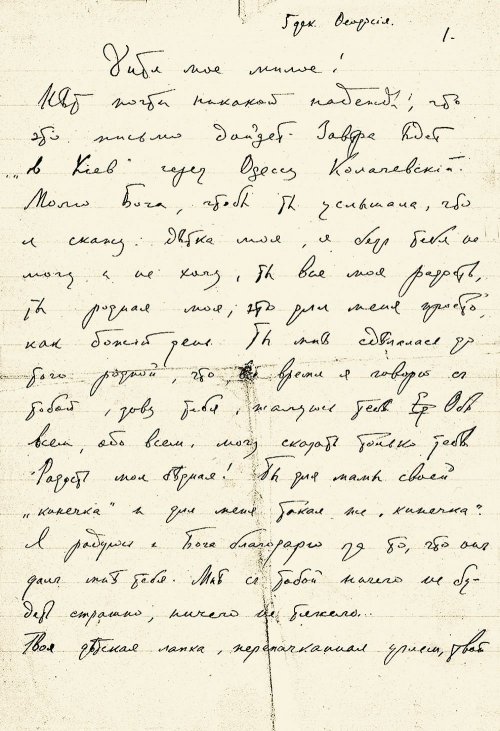 5 дек. Феодосія.
1.
Дитя мое милое!
Нѣт почти никакой надежды, что
это письмо дойдет. Завтра ѣдет
„в Кіев" через Одессу Колачевскій.
Молю Бога, чтобы ты услышала, что
я скажу: дѣтка моя, я без тебя не
могу и не хочу, ты вся моя радость,
ты родная моя, это для меня просто,
как божій день. Ты мнѣ сдѣлалась до
того родной, что все время я говорю с
тобой, зову тебя, жалуюсь тебѣ Обо
всем, обо всем, могу сказать только тебѣ.
Радость моя бѣдная! Ты для мамы своей
„кинечка" и для меня такая же „кинечка".
Я радуюсь и Бога благодарю за то, что он
дал мнѣ тебя. Мнѣ с тобой ничего не бу-
дет страшно, ничего не тяжело...
Твоя дѣтская лапка, перепачканная углем, твой